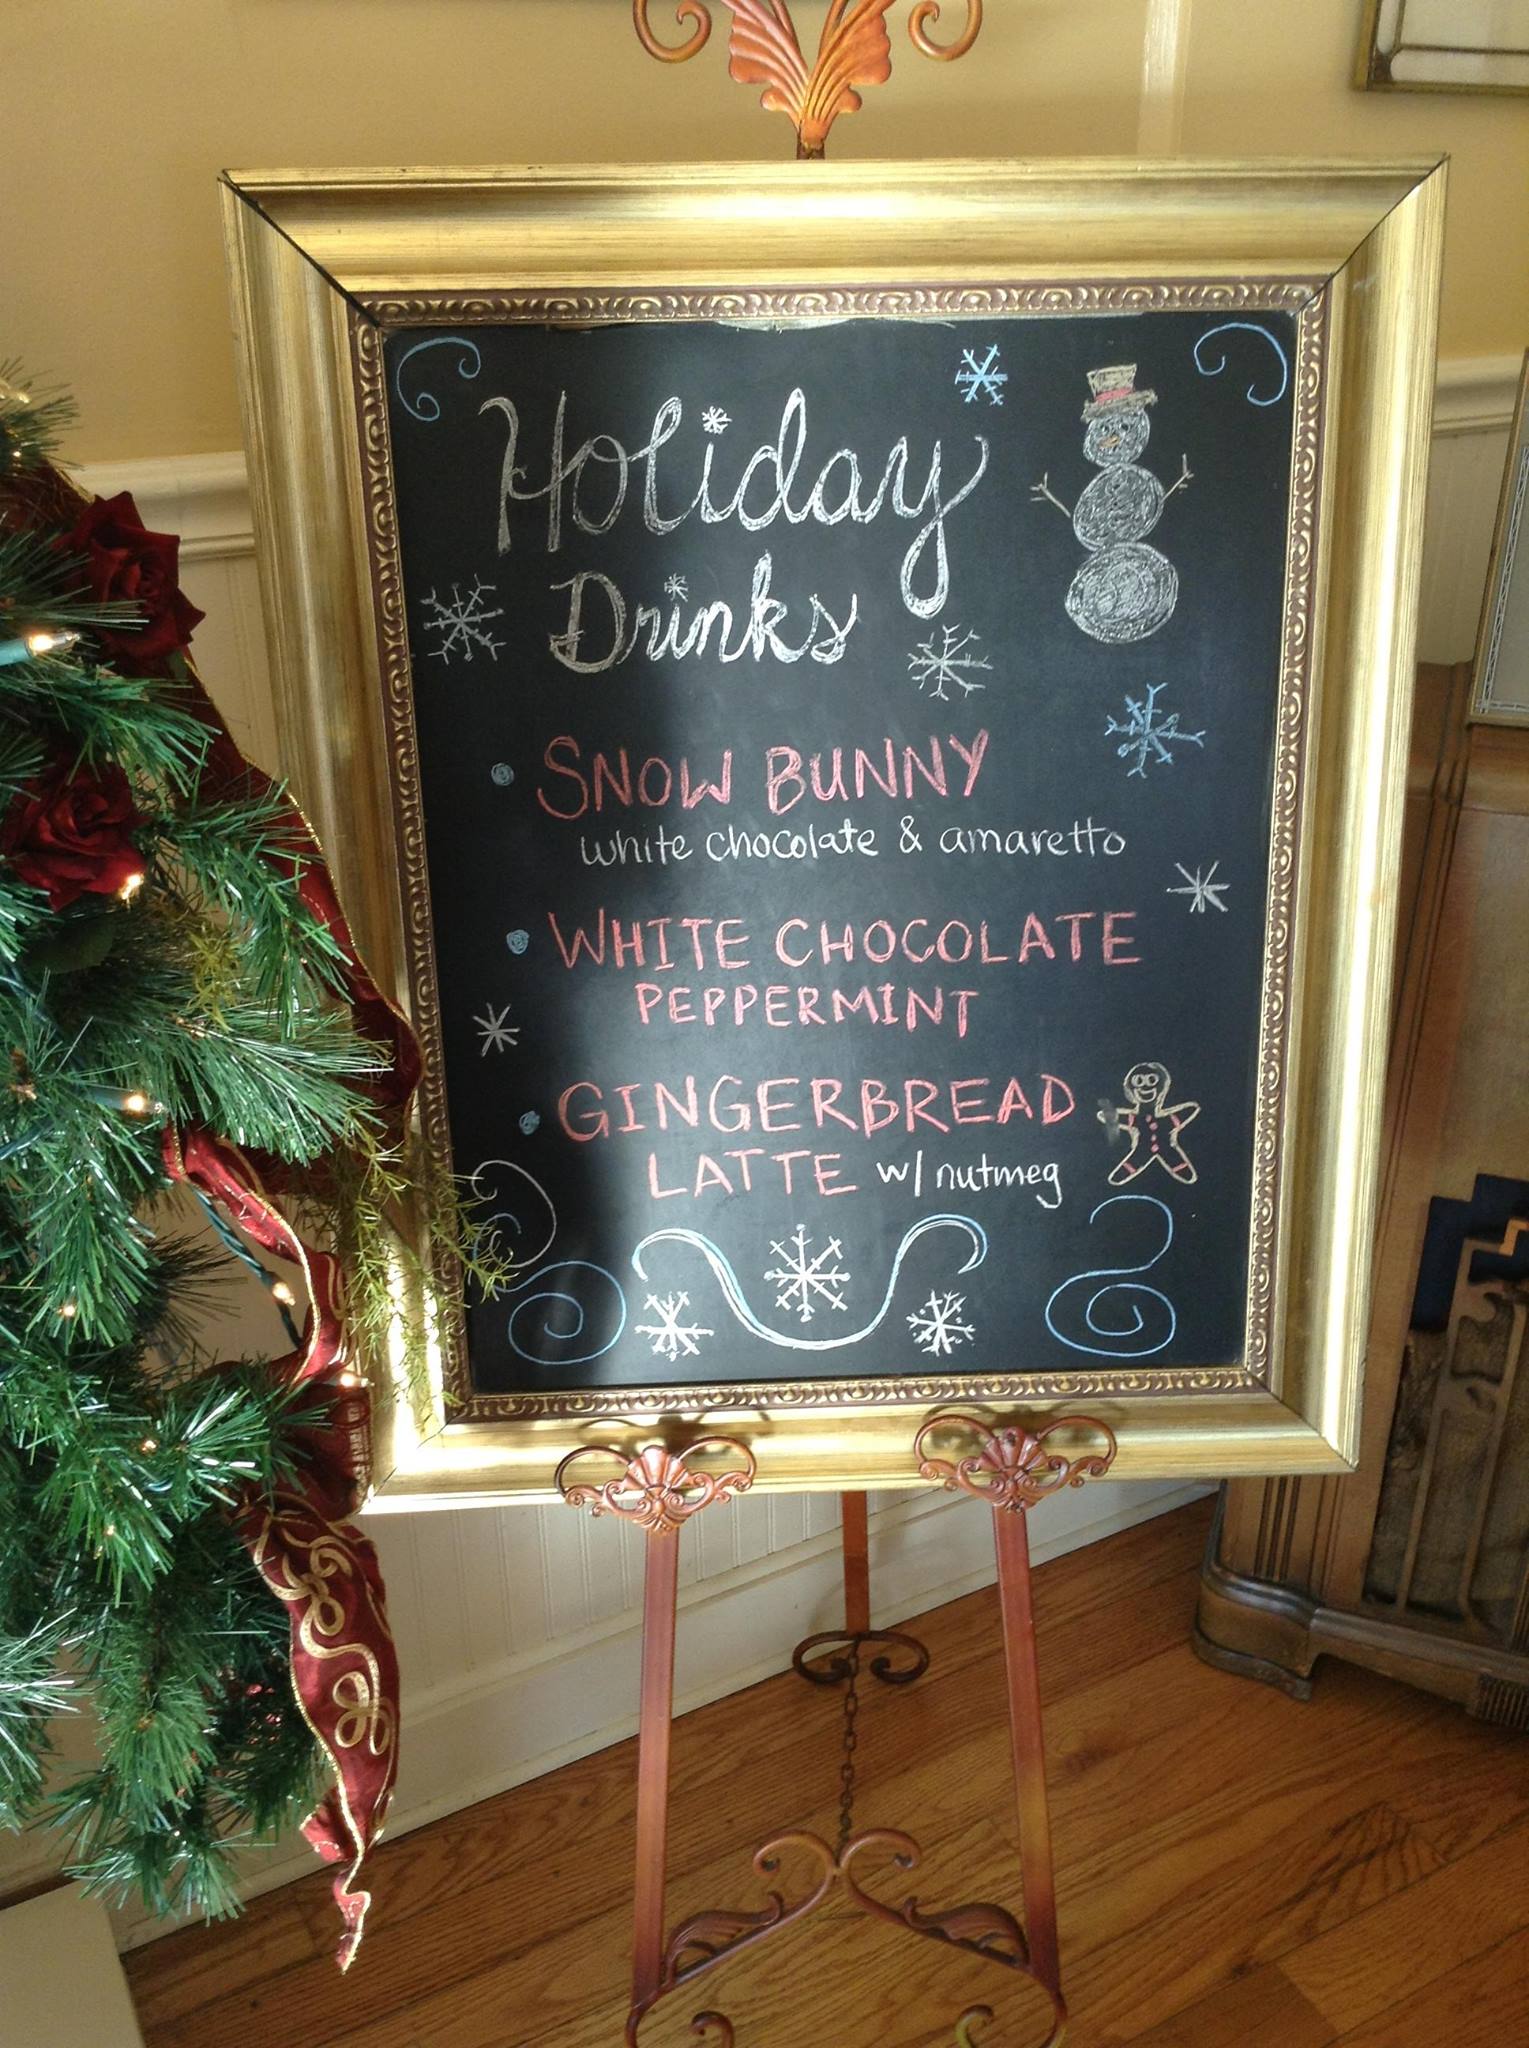 Holiday
Drinks
SNOW BUNNY
white chocolate & amaretto
WHITE CHOCOLATE
PEPPERMINT
GINGERBREAD
LATTE w/ nutmeg